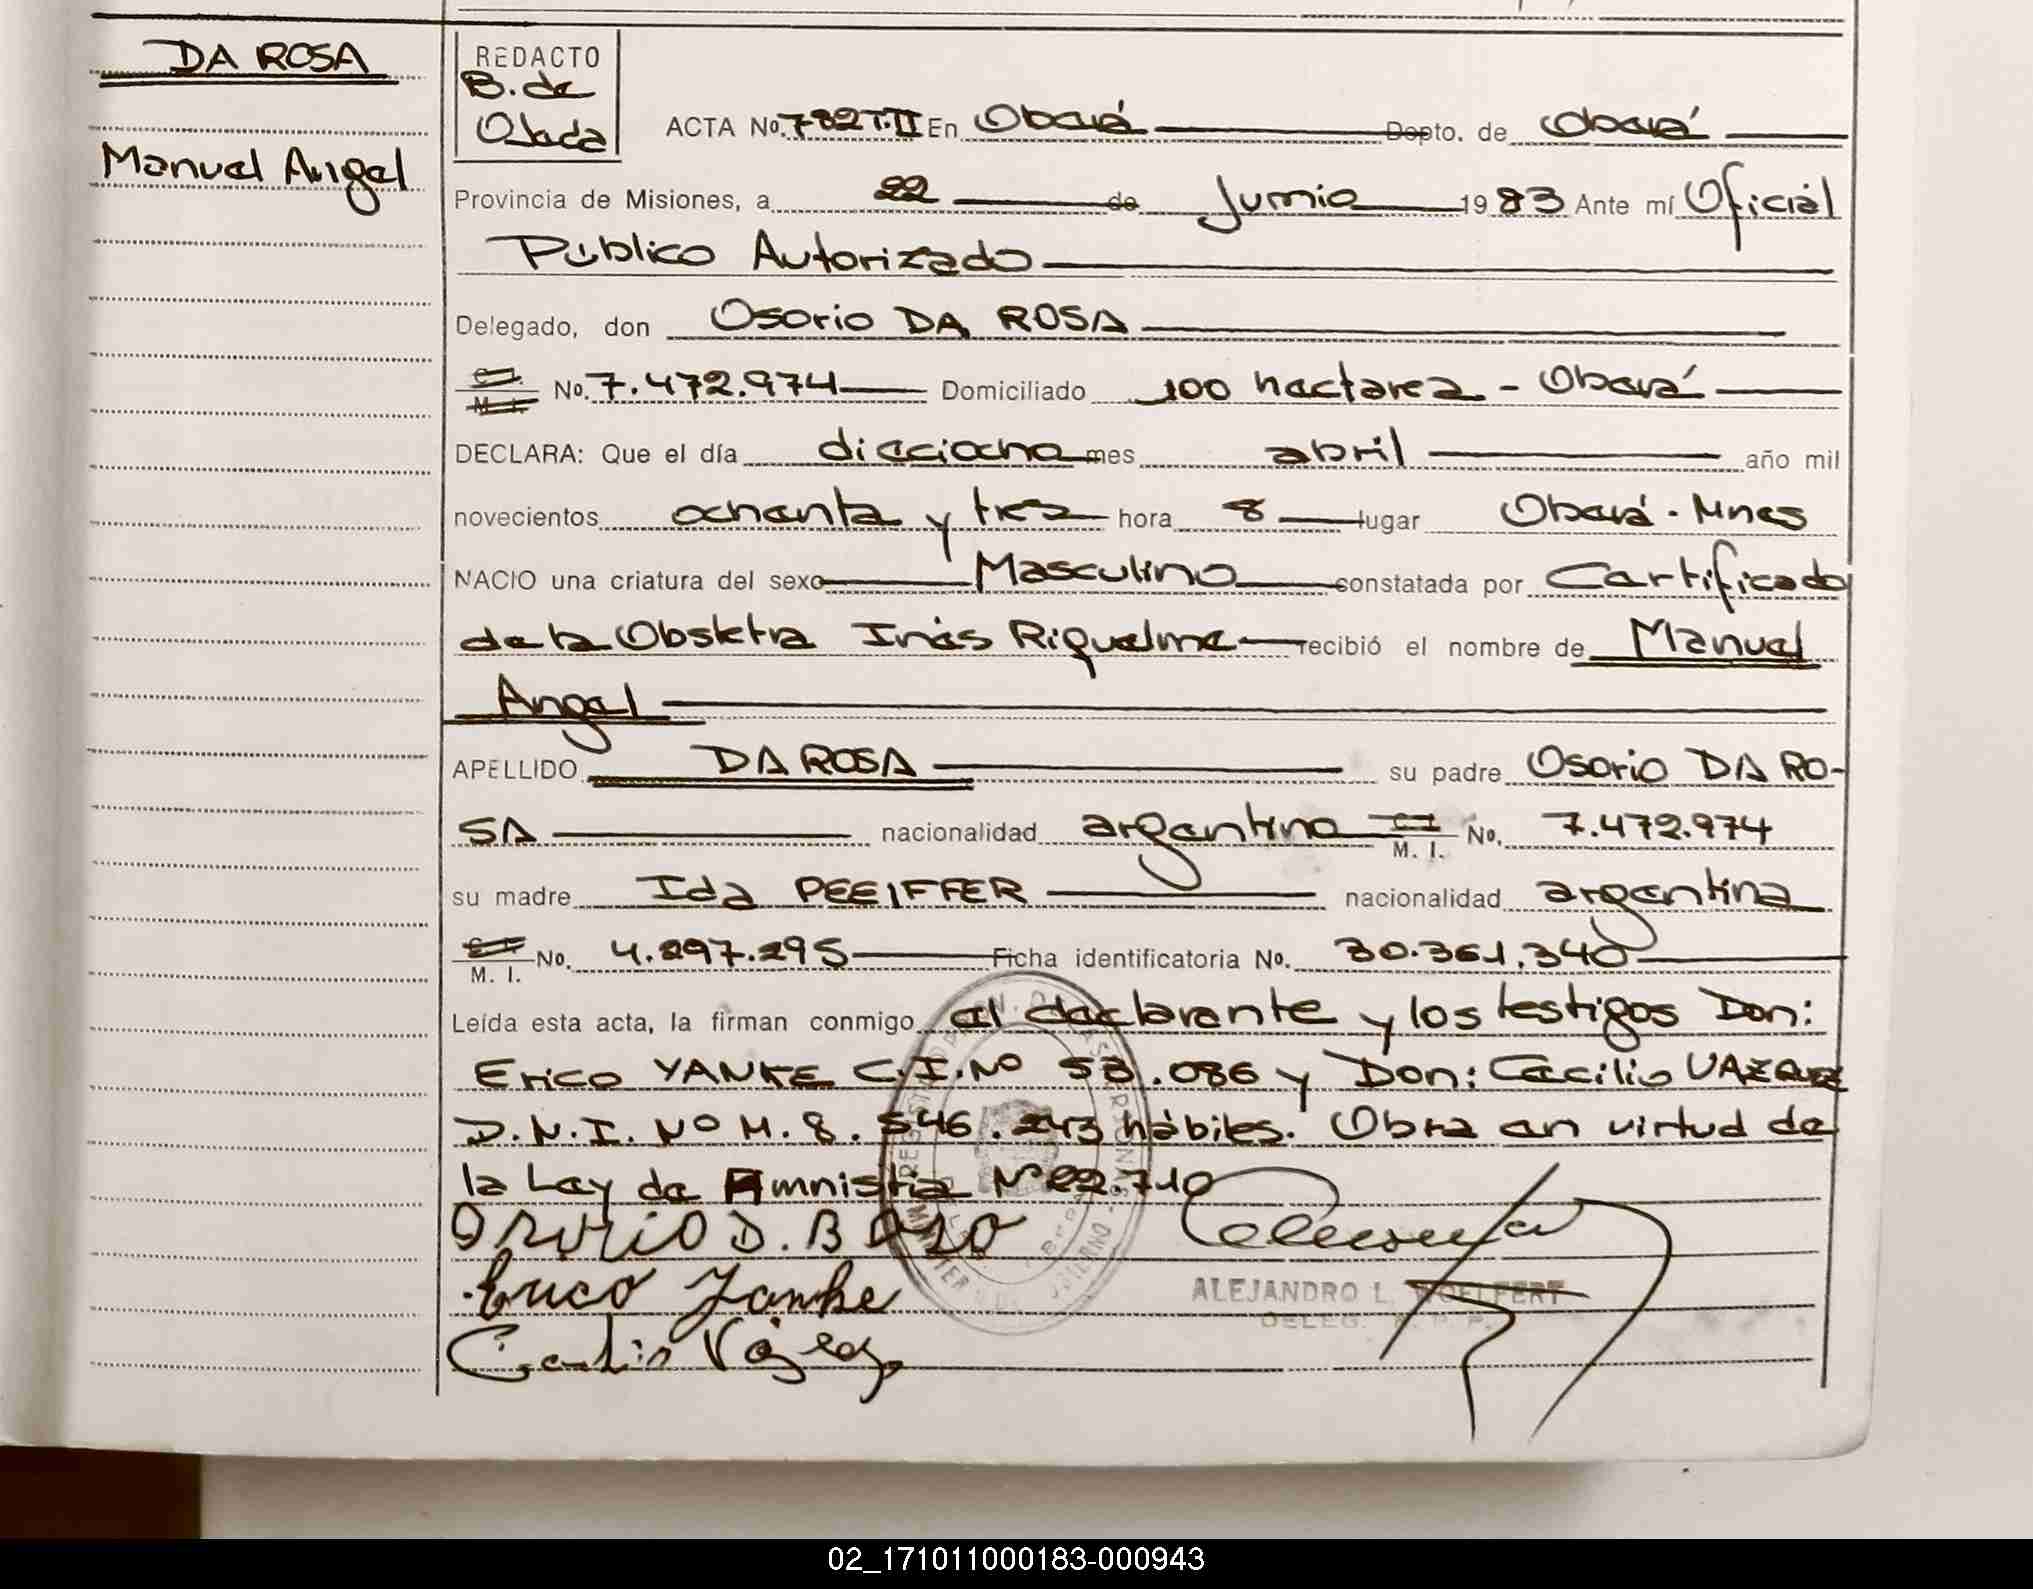 DA ROSA
Manuel Angel
REDACTO
B. de
Ojeda
ACTA No. 782 T.II En Oberá Depto. de Oberá
Provincia de Misiones, a 22 de Junio 1983 Ante mí Oficial
Público Autorizado
Delegado, don Osorio DA ROSA
C.I. M. I. No. 7.472.974 Domiciliado 100 hectarea - Oberá
DECLARA: Que el día dieciocho mes abril año mil
novecientos ochenta y tres hora 8 lugar Oberá - Mnes
NACIO una criatura del sexo Masculino constatada por Certificado
de la Obstetra Inés Riquelme recibió el nombre de Manuel
Angel
APELLIDO DA ROSA su padre Osorio DA RO-
SA nacionalidad argentino C.I. M. I. No. 7.472.974
su madre Ida PEEIFFER nacionalidad argentina
C.I. M. I. No. 4.897.295 Ficha identificatoria No. 30.361.340
Leída esta acta, la firman conmigo el declarante y los testigos Don:
Erico YANKE C.I. Nº 53.086 y Don: Cecilio VAZQUEZ
D.N.I. Nº M. 8.546.243 hábiles. Obra en virtud de
la Ley de Amnistia Nº 22.710
Osorio D. Roza
Erico Yanke
Cecilio Vázquez
ALEJANDRO L. WOELFERT
DELEG. R. P. P.
02_171011000183-000943